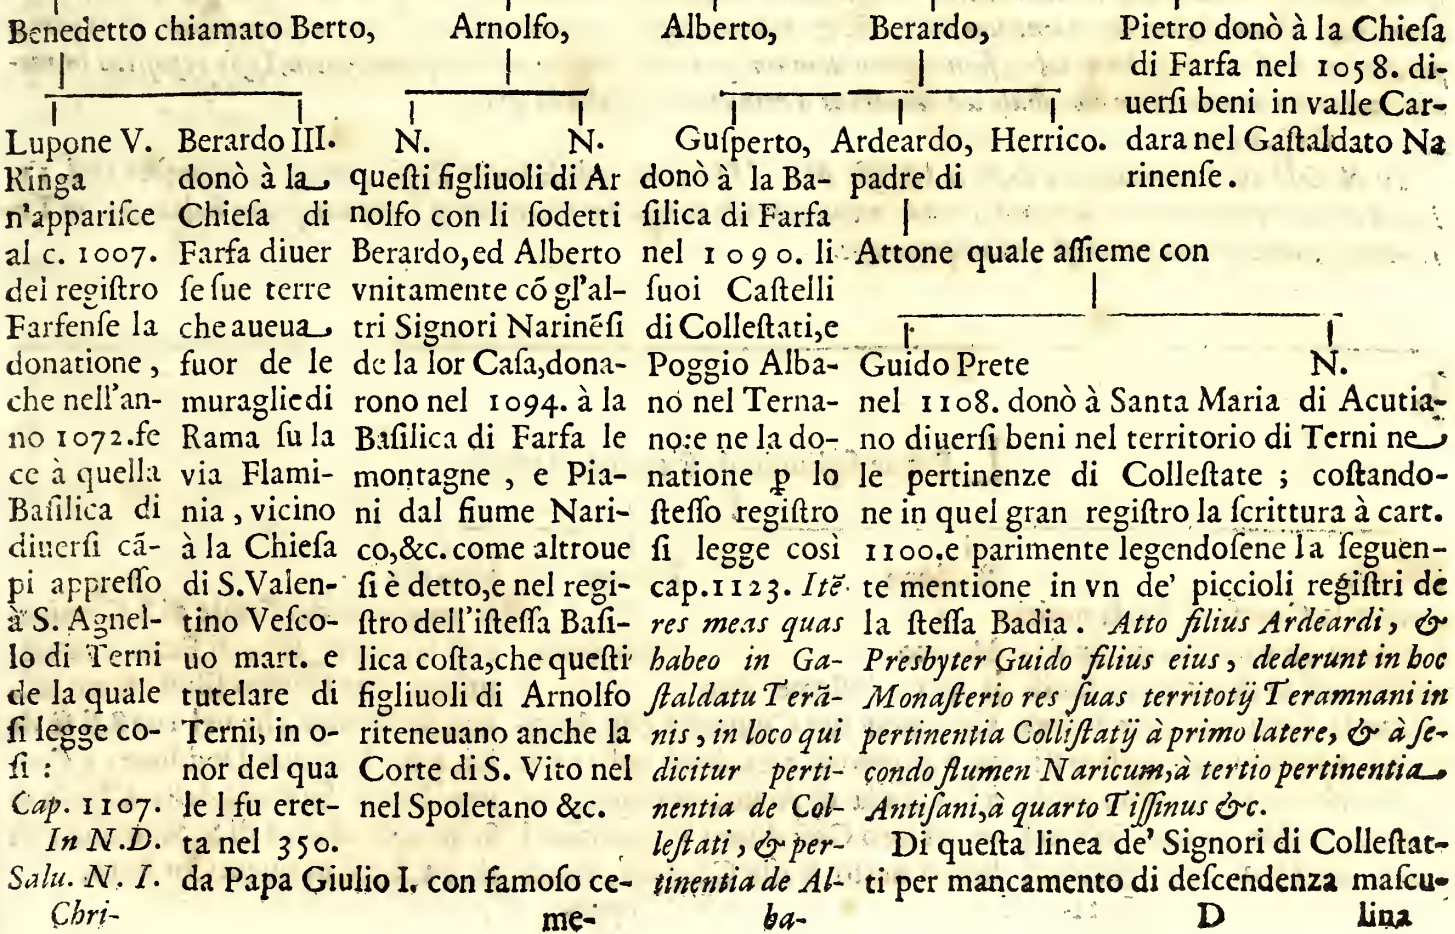 Benedetto chiamato Berto,
Arnolfo,
Alberto,
Berardo,
Pietro donò à la Chieſa
di Farfa nel 1058. di-
uerſi beni in valle Car-
dara nel Gaſtaldato Na
rinenſe.
Lupone V.
Ringa
n'appariſce
al c. 1007.
del regiſtro
Farfenſe la
donatione,
che nell'an-
no 1072.fe
ce à quella
Baſilica di
diuerſi cã-
pi appreſſo
à S. Agnel-
lo di Terni
de la quale
ſi legge co-
ſi :
Cap. 1107.
In N.D.
Salu. N. I.
Chri-
Berardo III.
donò à la
Chieſa di
Farfa diuer
ſe ſue terre
che aueua
fuor de le
muraglie di
Rama ſu la
via Flami-
nia, vicino
à la Chieſa
di S.Valen-
tino Veſco-
uo mart. e
tutelare di
Terni, in o-
nor del qua
le l fu eret-
ta nel 350.
da Papa Giulio I. con famoſo ce-
me-
N. N.
queſti figliuoli di Ar
nolfo con li ſodetti
Berardo, ed Alberto
vnitamente cõ gl'al-
tri Signori Narinẽſi
de la lor Caſa,dona-
rono nel 1094. à la
Baſilica di Farfa le
montagne, e Pia-
ni dal fiume Nari-
co,&c. come altroue
ſi è detto,e nel regi-
ſtro dell'iſteſſa Baſi-
lica coſta,che queſti
figliuoli di Arnolfo
riteneuano anche la
Corte di S. Vito nel
nel Spoletano &c.
Guſperto, Ardeardo, Herrico.
donò à la Ba-
ſilica di Farfa
nel 1090. li
ſuoi Caſtelli
di Colleſtati,e
Poggio Alba-
no nel Terna-
no:e ne la do-
natione ꝑ lo
ſteſſo regiſtro
ſi legge così
cap.1123. Itẽ
res meas quas
habeo in Ga-
ſtaldatu Terã-
nis, in loco qui
dicitur perti-
nentia de Col-
leſtati, & per-
tinentia de Al-
ba-
padre di
Attone quale aſſieme con
Guido Prete N.
nel 1108. donò à Santa Maria di Acutia-
no diuerſi beni nel territorio di Terni ne
le pertinenze di Colleſtate ; coſtando-
ne in quel gran regiſtro la ſcrittura à cart.
1100.e parimente legendoſene la ſeguen-
te mentione in vn de' piccioli regiſtri de
la ſteſſa Badia. Atto filius Ardeardi, &
Presbyter Guido filius eius, dederunt in hoc
Monaſterio res ſuas territotij Teramnani in
pertinentia Colliſtatij à primo latere, & à ſe-
condo flumen Naricum,à tertio pertinentia
Antiſani,à quarto Tiſſinus &c.
Di queſta linea de' Signori di Colleſtat-
ti per mancamento di deſcendenza maſcu-
D lina